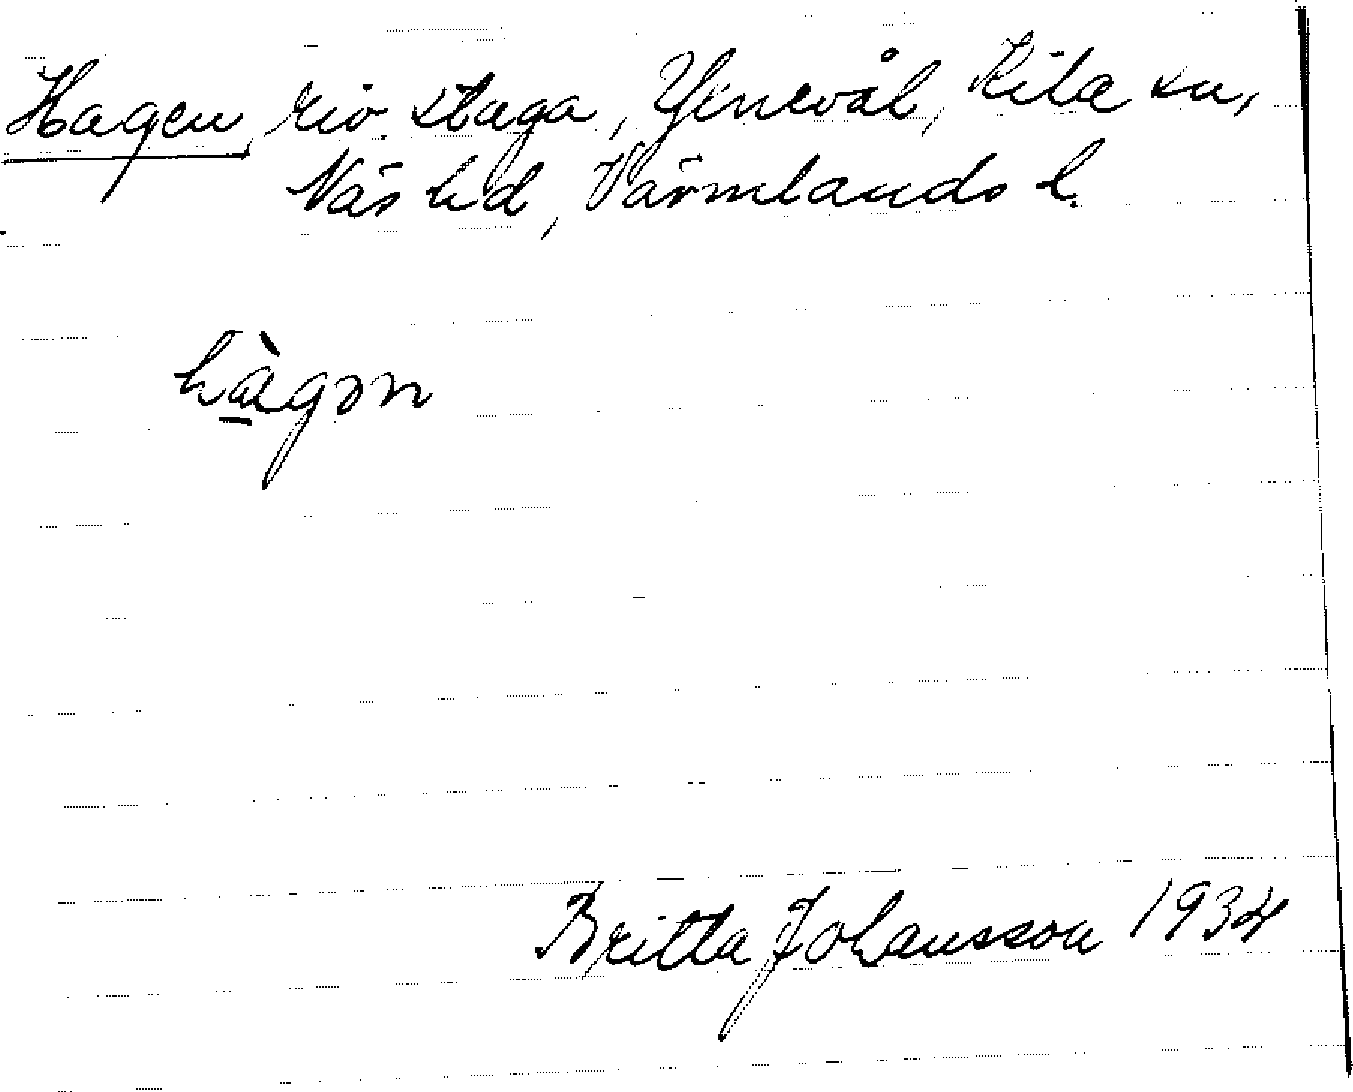 Hagen, riv. stuga, Ginevål, Kila sn,
Näs hd, Värmlands l.
hàgɔn
Britta Johansson 1934